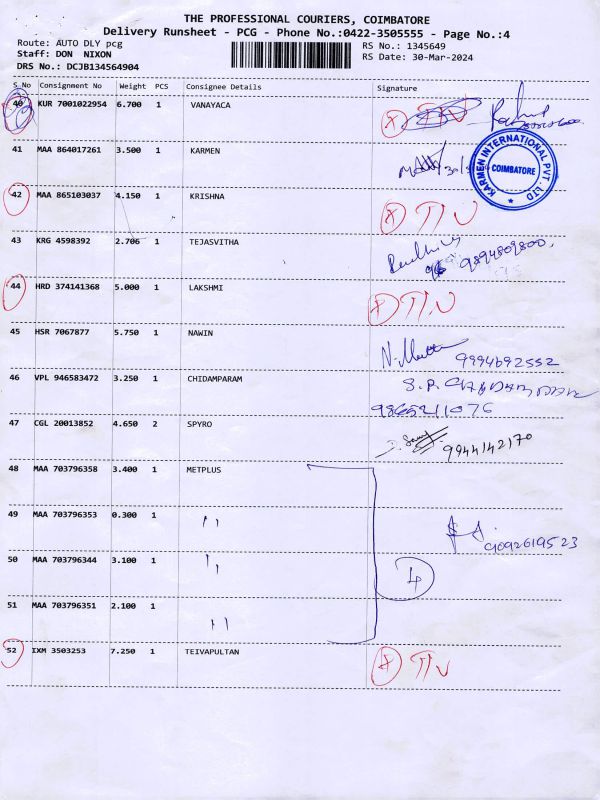 THE PROFESSIONAL COURIERS, COIMBATORE
Delivery Runsheet - PCG - Phone No.:0422-3505555 - Page No.:4
Route: AUTO DLY pcg
Staff: DON NIXON
DRS No.: DCJB134564904
RS No.: 1345649
RS Date: 30-Mar-2024
S_No Consignment No Weight PCS Consignee Details Signature
40 KUR 7001022954 6.700 1 VANAYACA
41 MAA 864017261 3.500 1 KARMEN
KARMEN INTERNATIONAL PVT. LTD
COIMBATORE
42 MAA 865103037 4.150 1 KRISHNA
43 KRG 4598392 2.706 1 TEJASVITHA
9894809800.
44 HRD 374141368 5.000 1 LAKSHMI
45 HSR 7067877 5.750 1 NAWIN
9994692552
46 VPL 946583472 3.250 1 CHIDAMPARAM
9865211076
47 CGL 20013852 4.650 2 SPYRO
9944142170
48 MAA 703796358 3.400 1 METPLUS
49 MAA 703796353 0.300 1 ''
9092619523
50 MAA 703796344 3.100 1 ''
4
51 MAA 703796351 2.100 1 ''
52 IXM 3503253 7.250 1 TEIVAPULTAN